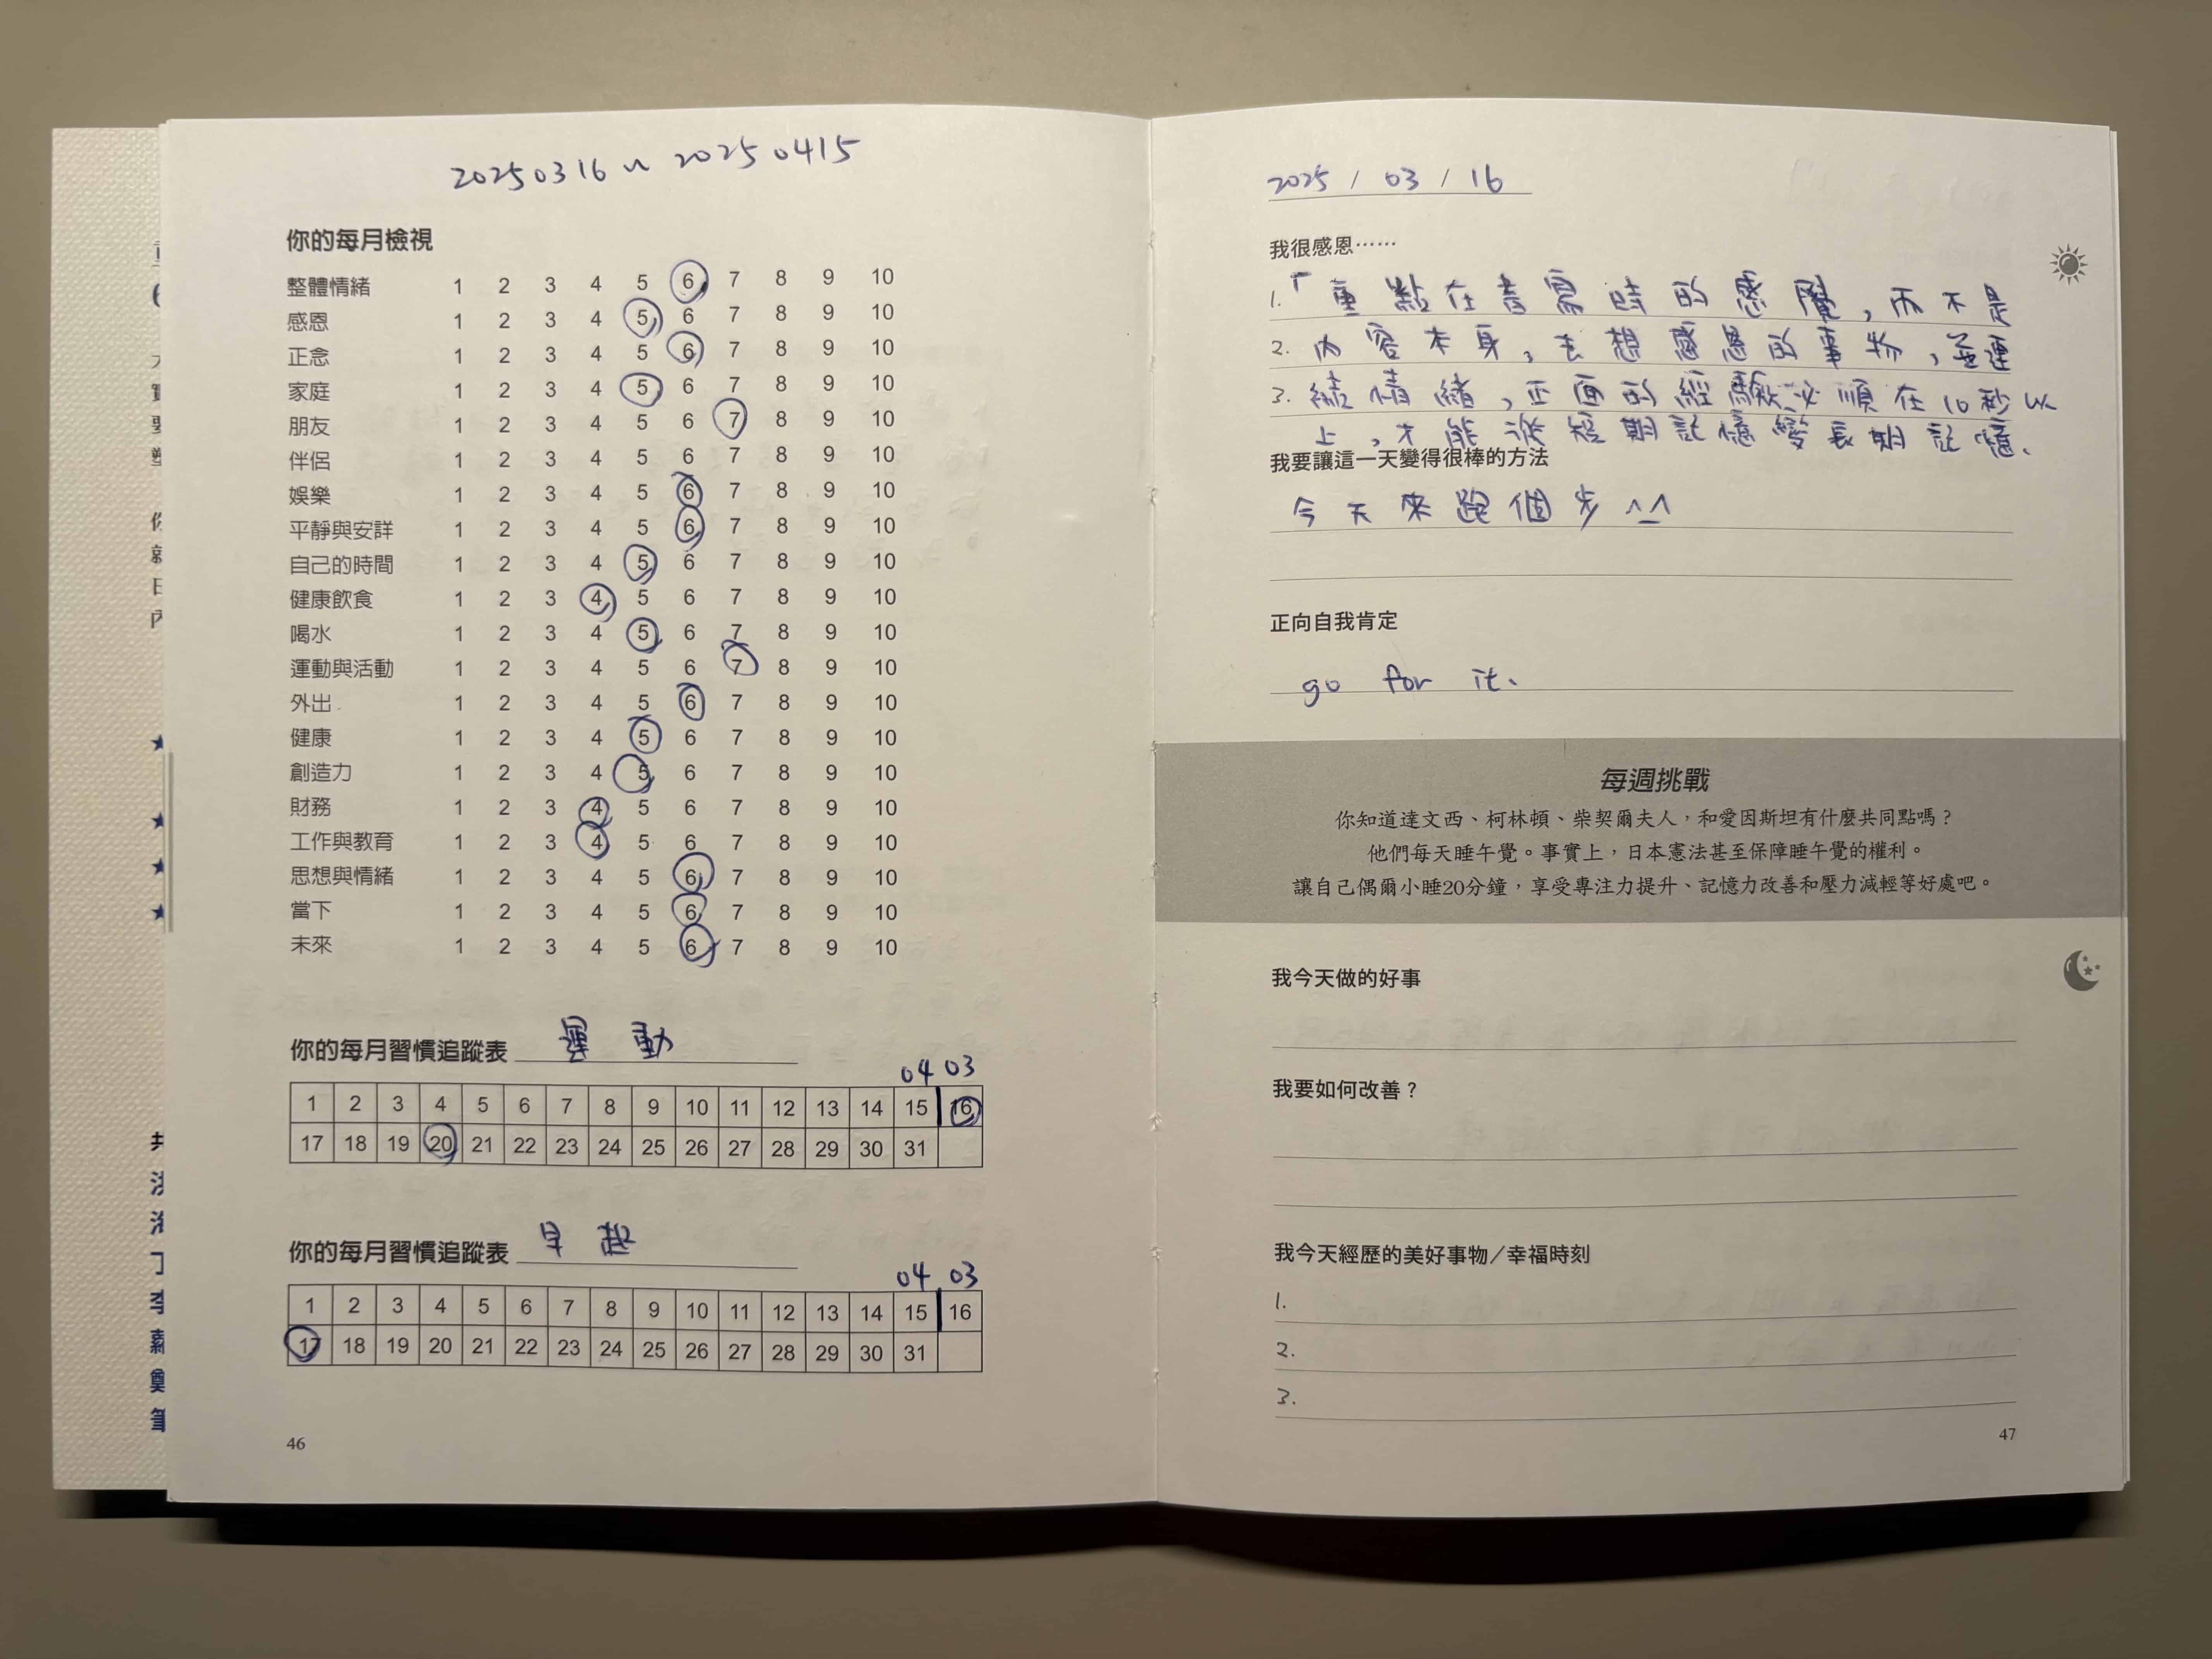 20250316 ~ 20250415
你的每月檢視
整體情緒 1 2 3 4 5 6 7 8 9 10
感恩 1 2 3 4 5 6 7 8 9 10
正念 1 2 3 4 5 6 7 8 9 10
家庭 1 2 3 4 5 6 7 8 9 10
朋友 1 2 3 4 5 6 7 8 9 10
伴侶 1 2 3 4 5 6 7 8 9 10
娛樂 1 2 3 4 5 6 7 8 9 10
平靜與安詳 1 2 3 4 5 6 7 8 9 10
自己的時間 1 2 3 4 5 6 7 8 9 10
健康飲食 1 2 3 4 5 6 7 8 9 10
喝水 1 2 3 4 5 6 7 8 9 10
運動與活動 1 2 3 4 5 6 7 8 9 10
外出 1 2 3 4 5 6 7 8 9 10
健康 1 2 3 4 5 6 7 8 9 10
創造力 1 2 3 4 5 6 7 8 9 10
財務 1 2 3 4 5 6 7 8 9 10
工作與教育 1 2 3 4 5 6 7 8 9 10
思想與情緒 1 2 3 4 5 6 7 8 9 10
當下 1 2 3 4 5 6 7 8 9 10
未來 1 2 3 4 5 6 7 8 9 10
你的每月習慣追蹤表 運動
04 03
1 2 3 4 5 6 7 8 9 10 11 12 13 14 15 16
17 18 19 20 21 22 23 24 25 26 27 28 29 30 31
你的每月習慣追蹤表 早起
04 03
1 2 3 4 5 6 7 8 9 10 11 12 13 14 15 16
17 18 19 20 21 22 23 24 25 26 27 28 29 30 31
46
2025 / 03 / 16
我很感恩……
1.「重點在書寫時的感覺，而不是
2. 內容本身，去想感恩的事物，並連
3. 結情緒，正面的經驗必須在10秒以
上，才能從短期記憶變長期記憶、
我要讓這一天變得很棒的方法
今天來跑個步 ^_^
正向自我肯定
go for it、
每週挑戰
你知道達文西、柯林頓、柴契爾夫人，和愛因斯坦有什麼共同點嗎？
他們每天睡午覺。事實上，日本憲法甚至保障睡午覺的權利。
讓自己偶爾小睡20分鐘，享受專注力提升、記憶力改善和壓力減輕等好處吧。
我今天做的好事
我要如何改善？
我今天經歷的美好事物／幸福時刻
1.
2.
3.
47